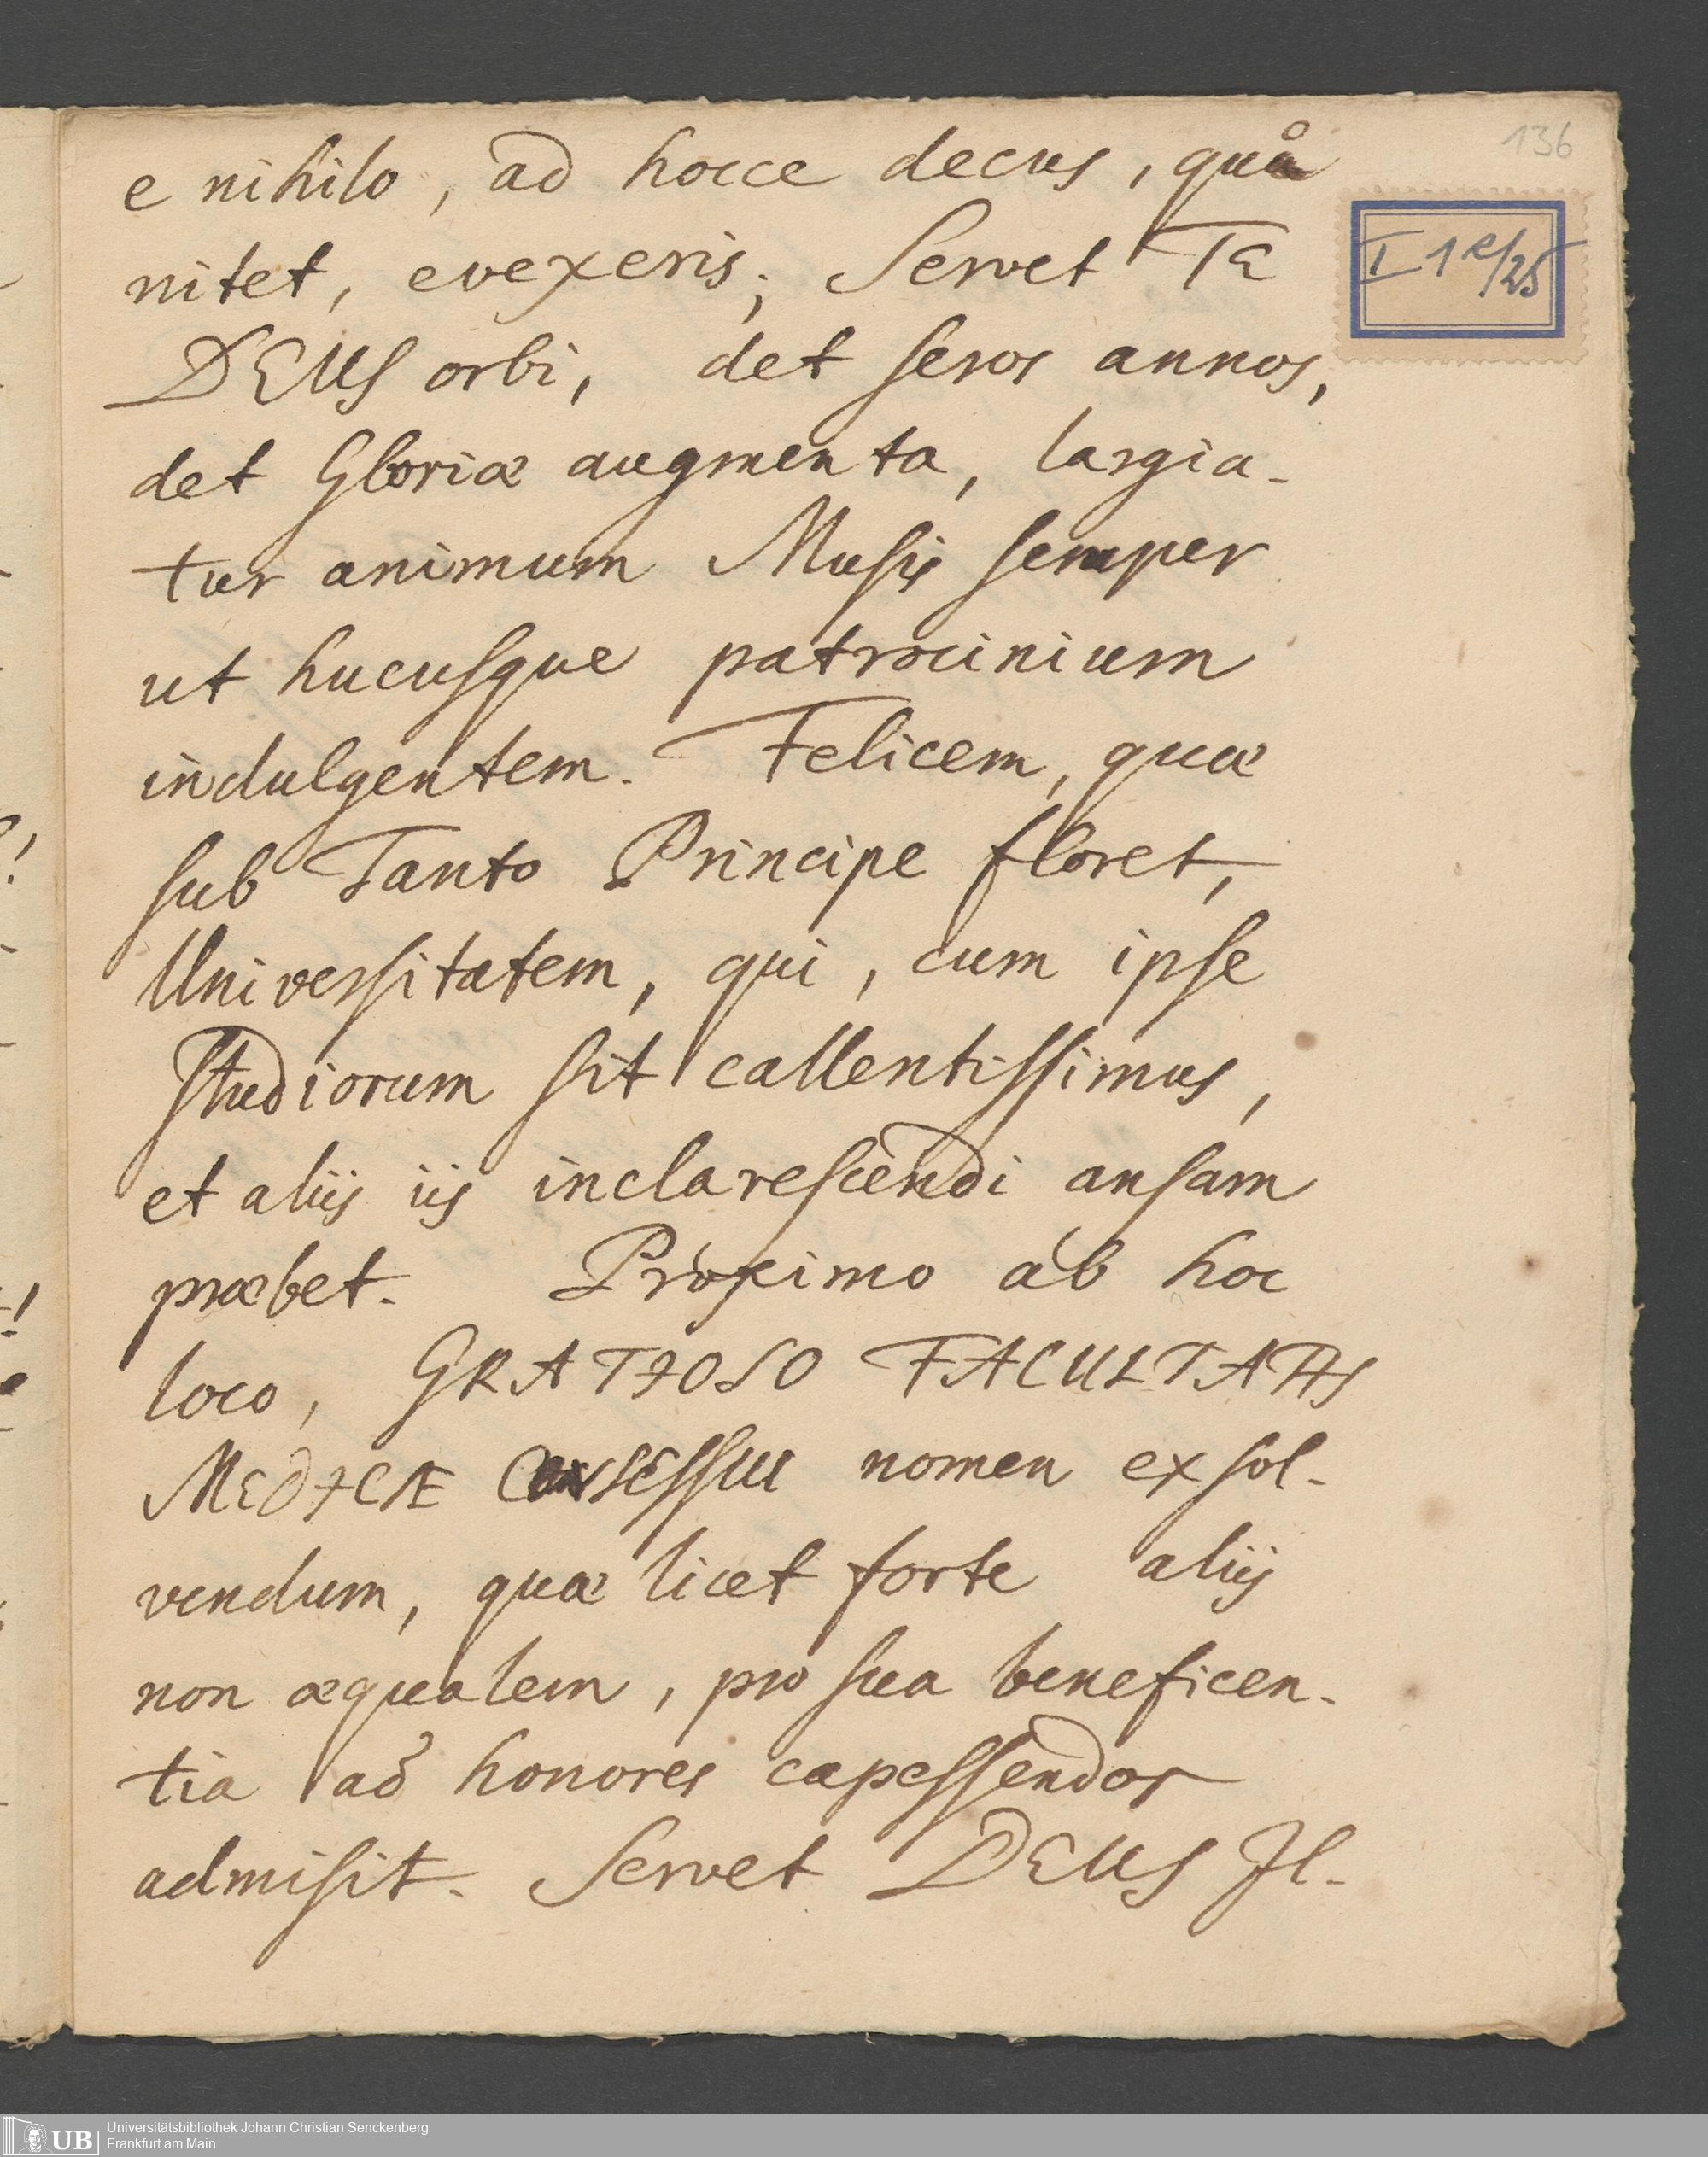 136
I 1 e/25
e nihilo, ad hocce decus, quå
nitet, evexeris; Servet Te
DEUS orbi, det seros annos,
det Gloriæ augmenta, largia-
tur animum Musis semper
ut hucusque patrocinium
indulgentem. Felicem, quæ
sub Tanto Principe floret,
Universitatem, qui, cum ipse
Studiorum sit callentissimus,
et aliis iis inclarescendi ansam
præbet. Proximo ab hoc
loco, GRATIOSO FACULTATIS
MEDICÆ CONSESSUI nomen exsol-
vendum, quæ licet forte aliis
non æqualem, pro sua beneficen-
tia ad honores capessendos
admisit. Servet DEUS Il-
UB
Universitätsbibliothek Johann Christian Senckenberg
Frankfurt am Main